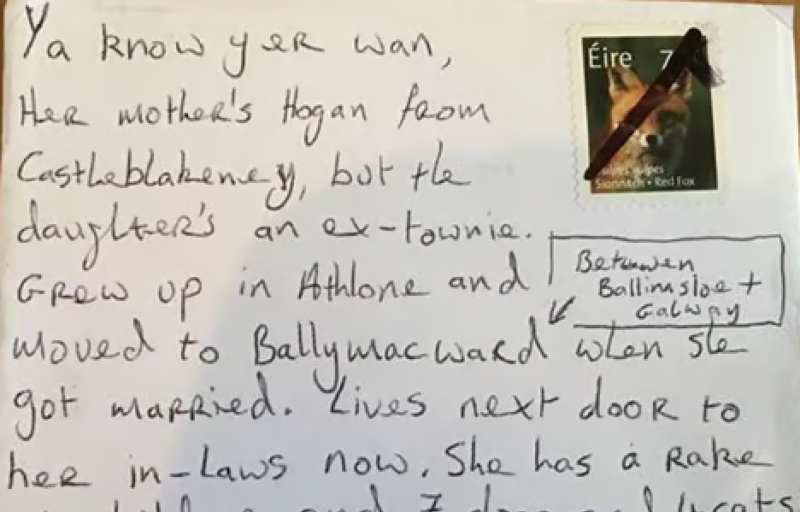 Ya know yer wan,
Éire 7
Her mother's Hogan from
Castleblakeney, but the
Sionnach • Red Fox
daughter's an ex-townie.
Grew up in Athlone and
Between
Ballinasloe +
Galway
moved to Ballymacward when she
got married. Lives next door to
her in-laws now. She has a rake
and 7 dogs and 4 cats